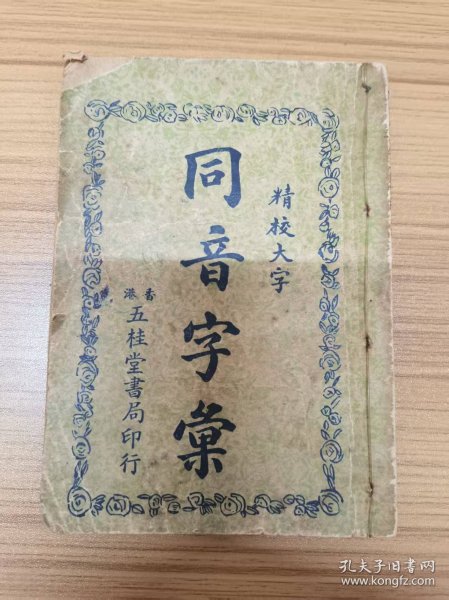 精校大字
同音字彙
香港
五桂堂書局印行
孔夫子旧书网
www.kongfz.com